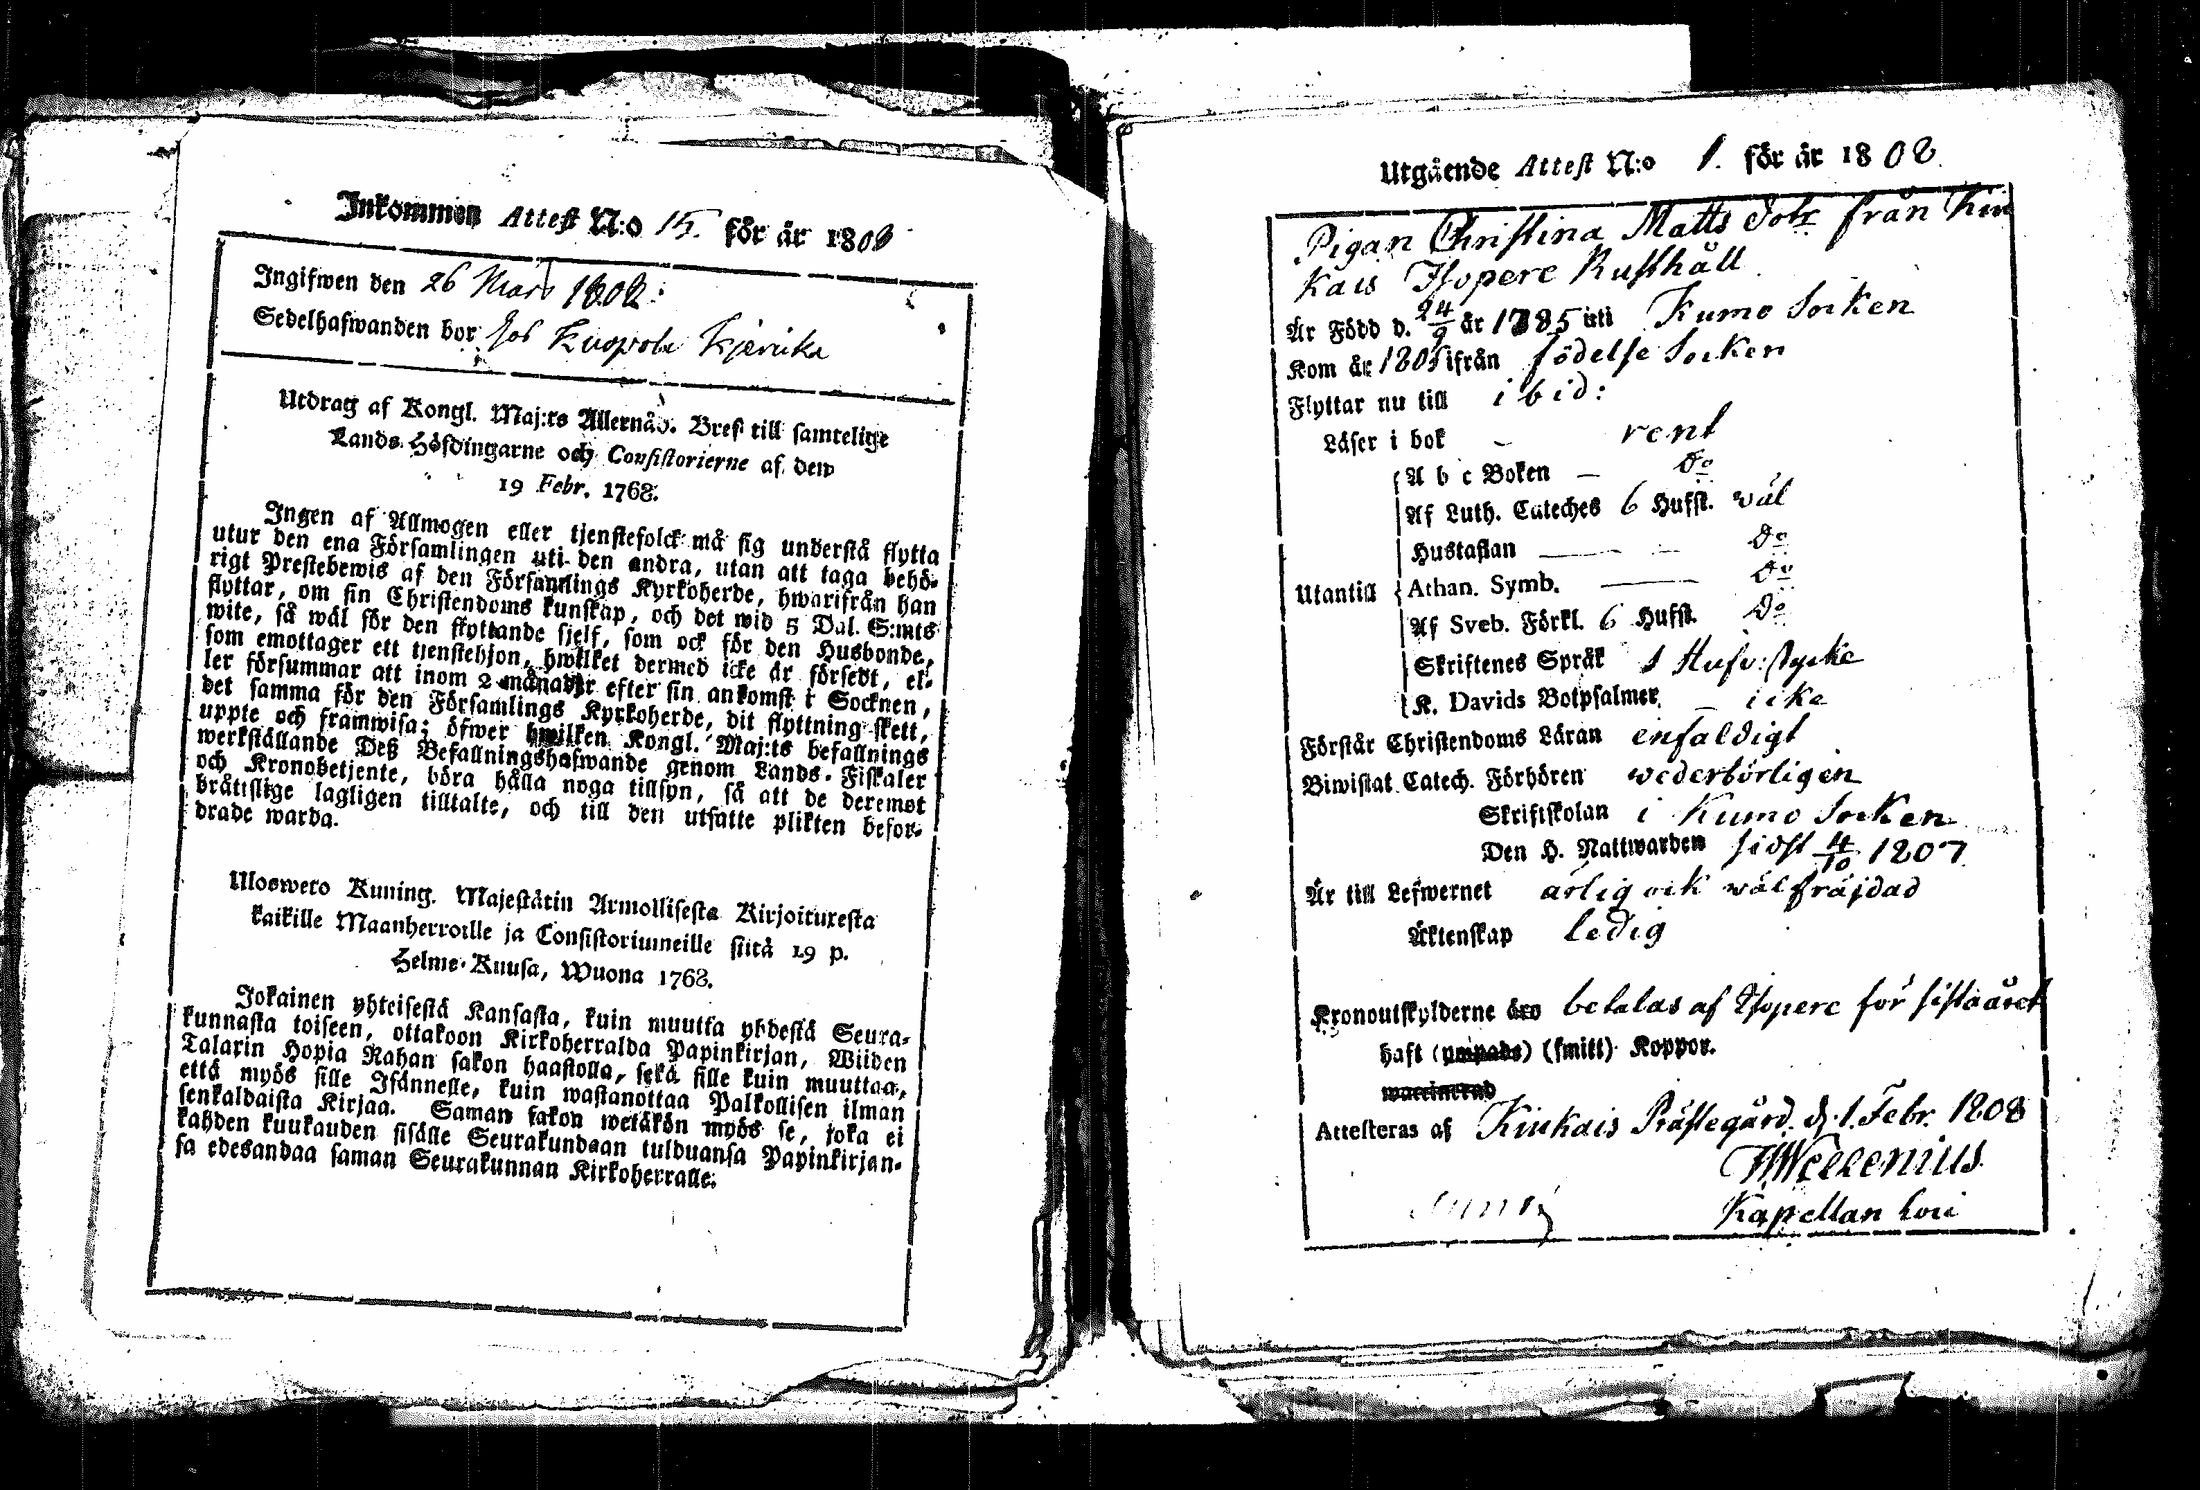 Inkommen Attest N:o 15. för år 1808
Ingifwen den 26 Mars 1808.
Sedelhafwanden bor hos Kuopola Kjerika
Utdrag af Kongl. Maj:ts Allernåd. Bref till samtelige
Lands-Höfdingarne och Consistorierne af den
19 Febr. 1768.
Ingen af Allmogen eller tjenstefolck må sig understå flytta
utur den ena Församlingen uti den andra, utan att taga behö-
rigt Prestebewis af den Församlings Kyrkoherde, hwarifrån han
flyttar, om sin Christendoms kunskap, och det wid 5 Dal. S:mts
wite, så wäl för den flyttande sjelf, som ock för den Husbonde,
som emottager ett tjenstehjon, hwilket dermed icke är försedt, el-
ler försummar att inom 2 månader efter sin ankomst i Socknen,
det samma för den Församlings Kyrkoherde, dit flyttning skett,
uppte och framwisa; öfwer hwilken Kongl. Maj:ts befallnings
werkställande Deß Befallningshafwande genom Lands-Fiskaler
och Kronobetjente, böra hålla noga tillsyn, så att de deremot
bråtslige lagligen tilltalte, och till den utsatte plikten befor-
drade warda.
Uloswero Kuning. Majestätin Armollisesta Kirjoituxesta
kaikille Maanherroille ja Consistoriumeille siitä 19 p.
Helme-Kuusa, Wuona 1768.
Jokainen yhteisestä Kansasta, kuin muutta yhdestä Seura-
kunnasta toiseen, ottakoon Kirkoherralda Papinkirjan, Wiiden
Talarin Hopia Rahan sakon haastolla, sekä sille kuin muuttaa,
että myös sille Isännelle, kuin wastanottaa Palkollisen ilman
senkaldaista Kirjaa. Saman sakon wetäkön myös se, joka ei
kahden kuukauden sisälle Seurakundaan tulduansa Papinkirjan-
sa edesandaa saman Seurakunnan Kirkoherralle.
Utgående Attest N:o 1. för år 1808.
Pigan Christina Matts Dotr från Kiu
kais Isopere Rusthåll
Är Född d. 24/9 år 1785 uti Kumo Socken
Kom år 1805 ifrån födelse Socken
Flyttar nu till ibid:
Läser i bok – rent
A b c Boken – Do
Af Luth. Cateches 6 Hufst. wäl
Hustaflan Do
Utantill Athan. Symb. Do
Af Sveb. Förkl. 6 Hufst. Do
Skriftenes Språk 1 Hufv: stycke
K. Davids Botpsalmer – icke
Förstår Christendoms Läran enfaldigt
Biwistat Catech. Förhören wederbörligen
Skriftskolan i Kumo Socken
Den H. Nattwarden sidst 4/10 1807.
Är till Lefwernet ärlig ock wälfräjdad
Äktenskap ledig
Kronoutskylderne äro betalas af Isopere för sista året
haft (ympade) (smitt) Koppor.
waccinerad
Attesteras af Kiukais Prästegård. d. 1. Febr. 1808
Kapellan